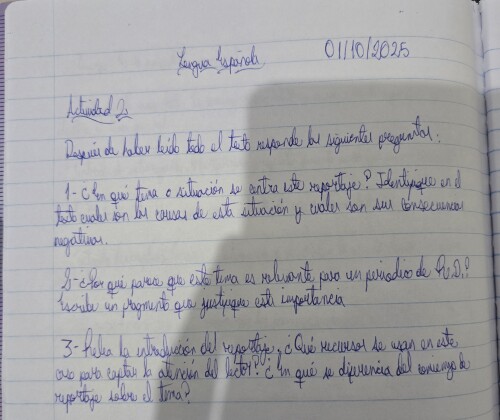 Lengua Española. 01/10/2025
Actividad 2.
Después de haber leído todo el texto responde las siguientes preguntas:
1- ¿En qué tema o situación se centra este reportaje? Identifique en el
texto cuales son las causas de esta situación y cuales son sus consecuencias
negativas.
2- ¿Por qué parece que este tema es relevante para un periodico de R.D.?
Escribe un fragmento que justifique esta importancia
3- Relea la introducción del reportaje, ¿Qué recursos se usan en este
caso para captar la atención del lector? ¿En qué se diferencia del comienzo de
reportaje sobre el tema?